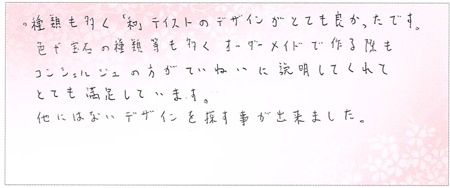 。種類も多く「和」テイストのデザインがとても良かったです。
色や宝石の種類等も多くオーダーメイドで作る際も
コンシェルジュの方がていねいに説明してくれて
とても満足しています。
他にはないデザインを探す事が出来ました。